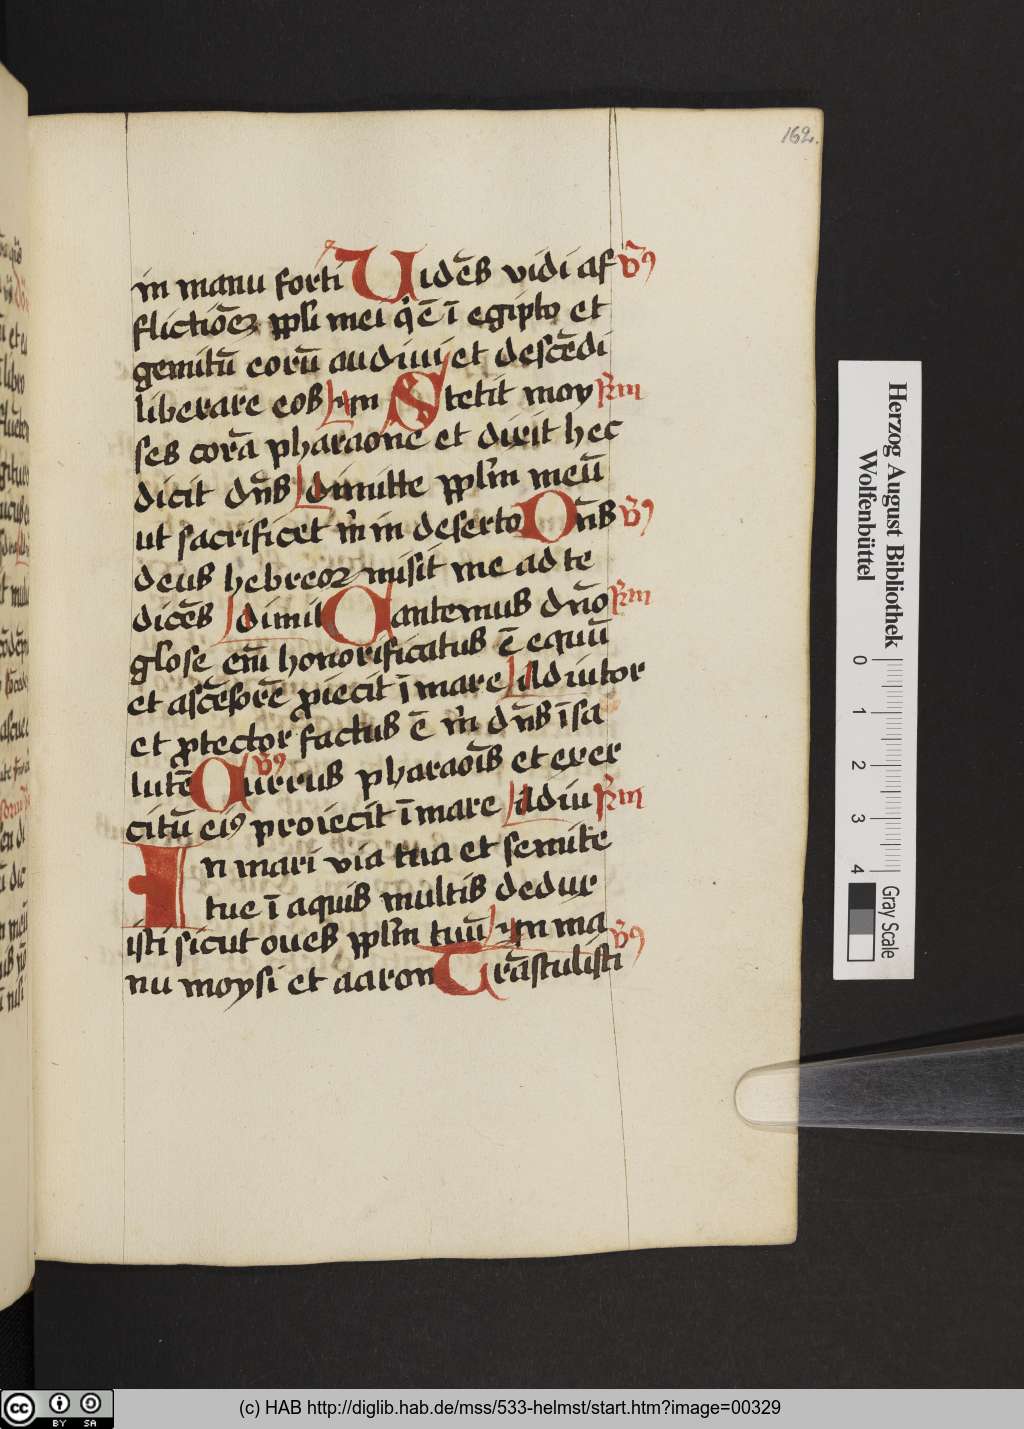 162.
in manu forti Uidēs vidi af v̄ꝰ
flictiōeꝫ pp̄li mei q̇ ē ī egipto et
gemitū eorū audiui et descēdi
liberare eos In Stetit moy R̄m
ses corā pharaone et dixit hec
dicit dn̄s dimitte pp̄lm meū
ut sacrificet m̄ in deserto Dn̄s v̄ꝰ
deus hebreoꝝ misit me ad te
dicēs dimit Cantemus dn̄o R̄m
glose em̄ honorificatus ē equū
et ascēsorē ꝓiecit ī mare Adiutor
et ꝓtector factus ē m̄ dn̄s ī sa
lutē Currus v̄ꝰ pharaōis et exer
citū eiꝰ proiecit ī mare Adiu R̄m
In mari via tua et semite
tue ī aquis multis dedux
isti sicut oues pp̄lm tuū In ma
nu moysi et aaron Trāstulisti v̄ꝰ
Herzog August Bibliothek
Wolfenbüttel
0 1 2 3 4
Gray Scale
cc BY SA
(c) HAB http://diglib.hab.de/mss/533-helmst/start.htm?image=00329